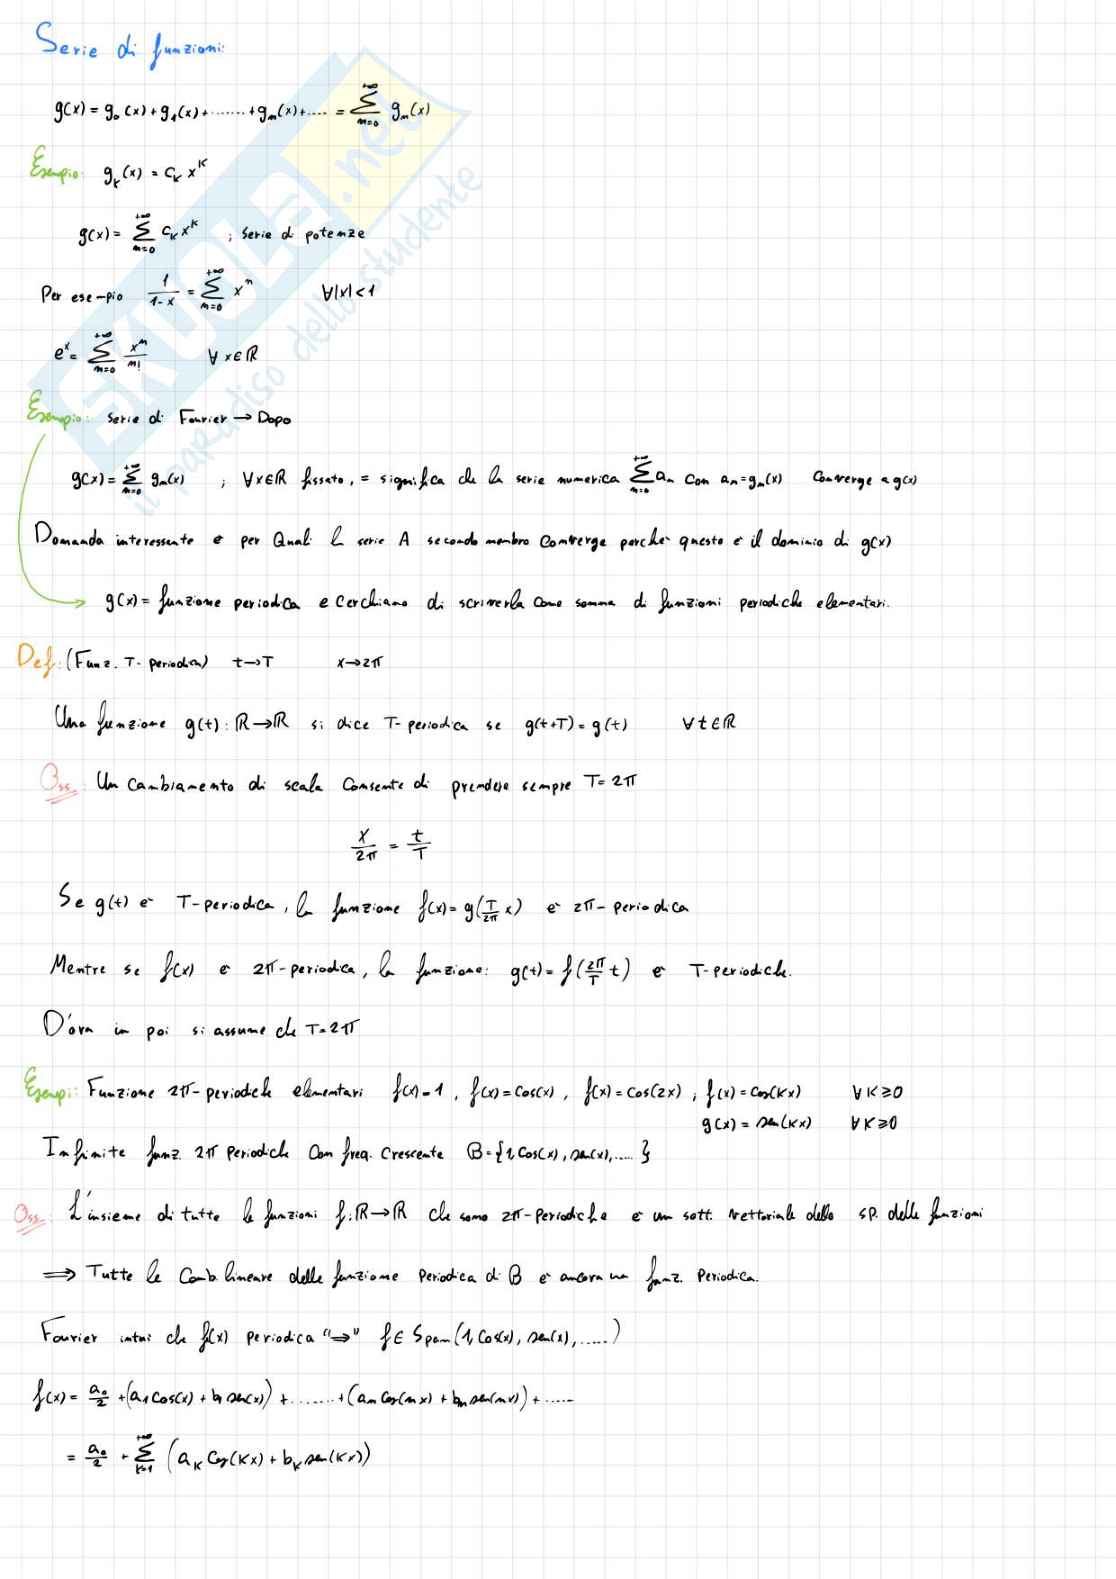 Serie di funzioni:
g(x) = g₀(x) + g₁(x) + ....... + gₙ(x) + .... = Σ_{n=0}^{+∞} gₙ(x)
Esempio: g_k(x) = c_k x^k
g(x) = Σ_{n=0}^{+∞} c_k x^k ; serie di potenze
Per esempio 1/(1-x) = Σ_{n=0}^{+∞} xⁿ ∀|x|<1
eˣ = Σ_{n=0}^{+∞} xⁿ/n! ∀ x∈ℝ
Esempio: serie di Fourier → Dopo
g(x) = Σ_{n=0}^{+∞} gₙ(x) ; ∀x∈ℝ fissato, = significa che la serie numerica Σ_{n=0}^{+∞} aₙ con aₙ=gₙ(x) converge a g(x)
Domanda interessante è per quali la serie A secondo membro converge perché questo è il dominio di g(x)
g(x) = funzione periodica e cerchiamo di scriverla come somma di funzioni periodiche elementari.
Def: (Funz. T-periodica) t→T x→2π
Una funzione g(t): ℝ→ℝ si dice T-periodica se g(t+T) = g(t) ∀t∈ℝ
Oss: Un cambiamento di scala consente di prendere sempre T=2π
x/2π = t/T
Se g(t) è T-periodica, la funzione f(x) = g(T/2π x) è 2π-periodica
Mentre se f(x) è 2π-periodica, la funzione: g(t) = f(2π/T t) è T-periodiche.
D'ora in poi si assume che T=2π
Esempi: Funzione 2π-periodiche elementari f(x)=1, f(x)=cos(x), f(x)=cos(2x), f(x)=cos(kx) ∀k≥0
g(x) = sen(kx) ∀k≥0
Infinite funz. 2π periodiche con freq. crescente B={1, cos(x), sen(x), .....}
Oss: L'insieme di tutte le funzioni f:ℝ→ℝ che sono 2π-periodiche è un sott. vettoriale dello sp. delle funzioni
⟹ Tutte le comb. lineare delle funzione periodica di B è ancora una funz. periodica.
Fourier intuì che f(x) periodica "⟹" f∈Span(1, cos(x), sen(x), .....)
f(x) = a₀/2 + (a₁cos(x) + b₁sen(x)) + ....... + (aₙcos(nx) + bₙsen(nx)) + .....
= a₀/2 + Σ_{k=1}^{+∞} (a_k cos(kx) + b_k sen(kx))
SKUOLA.net
il paradiso dello studente